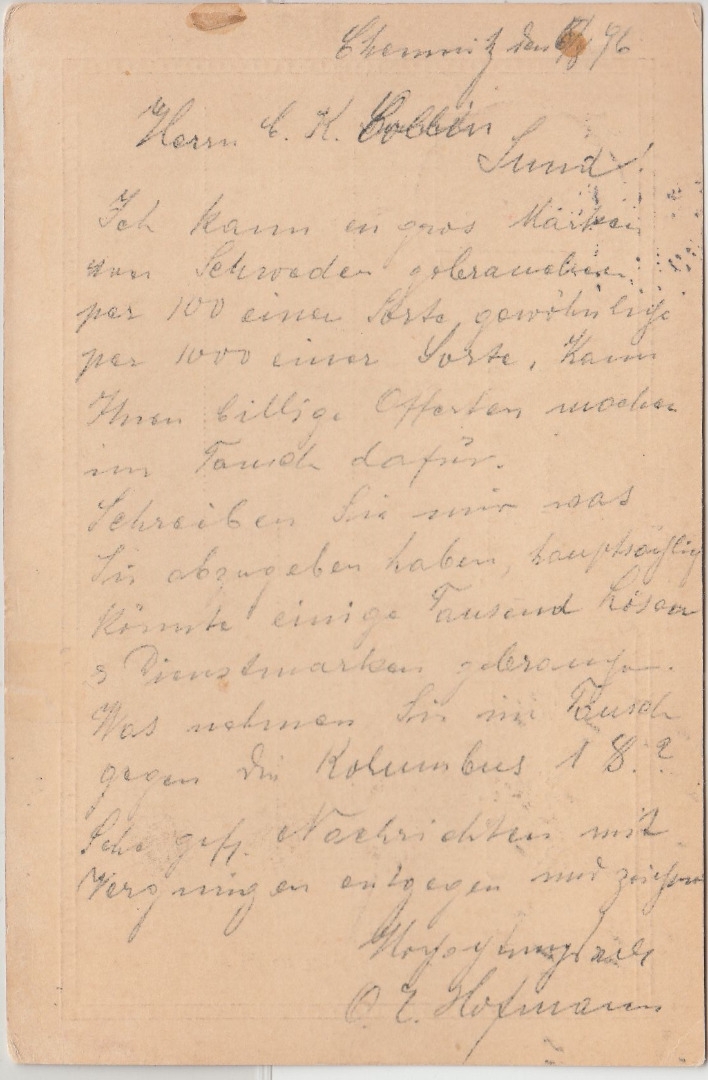 Chemnitz den 6/8 96
Herrn C. K.
Lund.
Ich kann en gros Marken
von Schweden gebrauchen
per 100 einer Sorte, gewöhnliche
per 1000 einer Sorte, Kann
Ihnen billige Offerten machen
im Tausch dafür.
Schreiben Sie mir was
Sie abzugeben haben, hauptsächlich
könnte einige Tausend Lösen
& Dienstmarken gebrauchen.
Was nehmen Sie im Tausch
gegen die Kolumbus 1 $.?
Sehe gefl. Nachrichten mit
Vergnügen entgegen und zeichne
Hochachtungsvoll
O. E. Hofmann